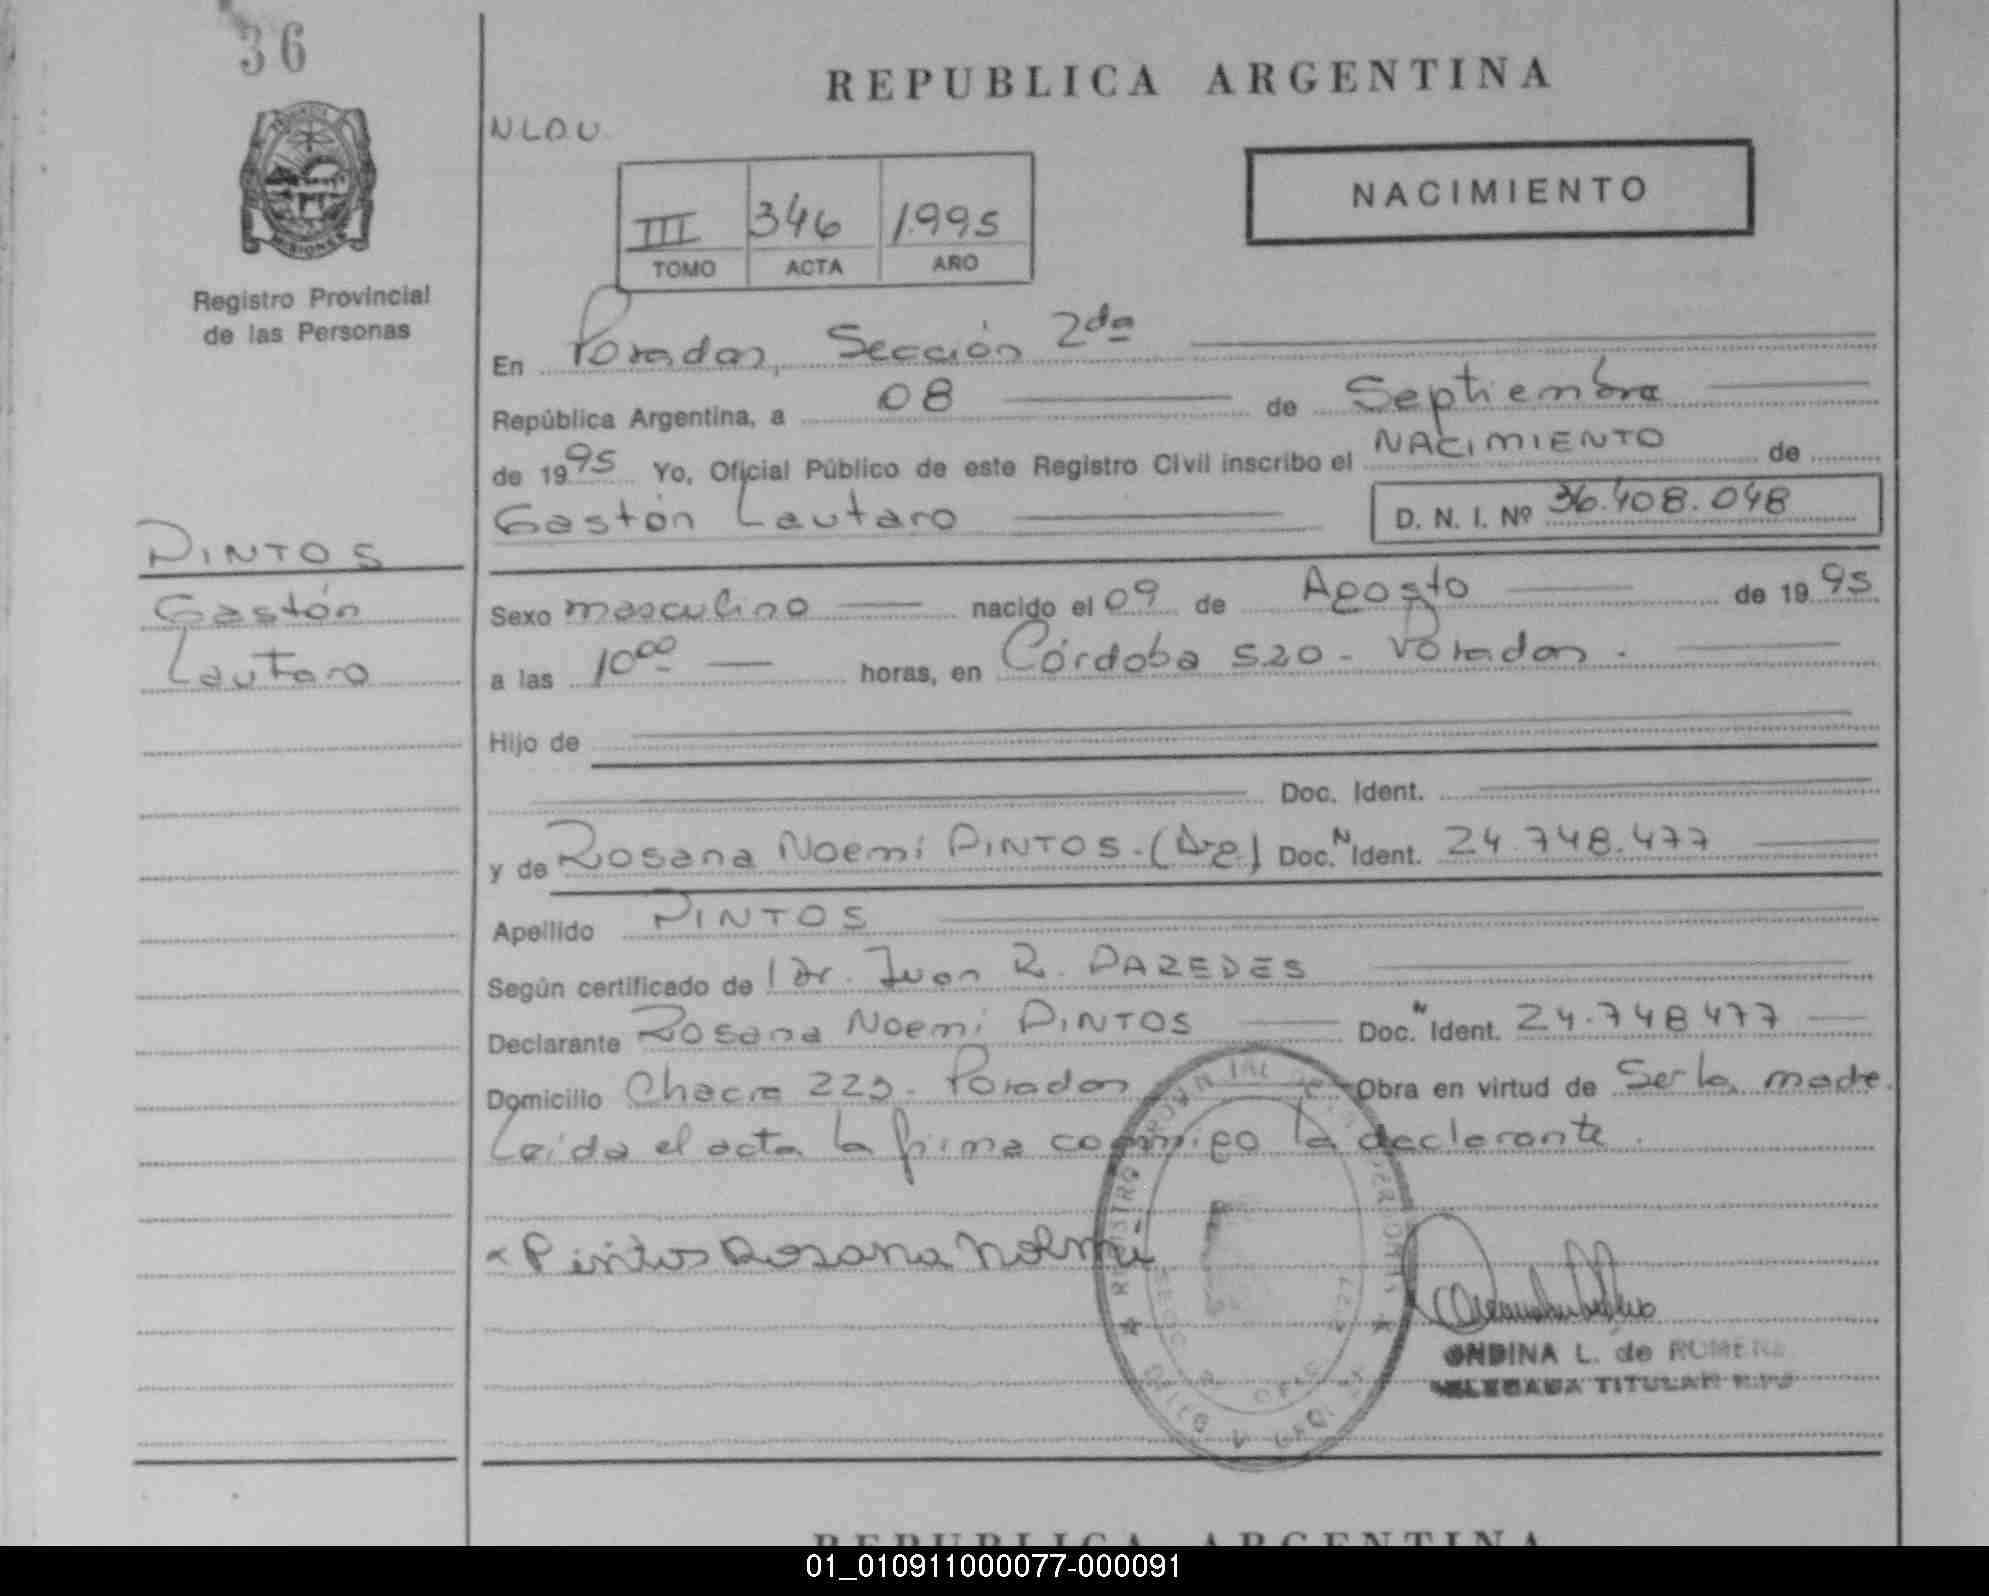 36
REPUBLICA ARGENTINA
N.L.O.U.
NACIMIENTO
III 346 1.995
TOMO ACTA AÑO
MISIONES
Registro Provincial
de las Personas
En Posadas, Sección 2da
República Argentina, a 08 de Septiembre
de 1995 Yo, Oficial Público de este Registro Civil inscribo el NACIMIENTO de
Gastón Lautaro D. N. I. Nº 36.408.048
PINTOS
Gastón
Lautaro
Sexo masculino nacido el 09 de Agosto de 1995
a las 10oo horas, en Córdoba 520 - Posadas.
Hijo de
Doc. Ident.
y de Rosana Noemí PINTOS - (Arg) Doc. N Ident. 24.748.477
Apellido PINTOS
Según certificado de Dr. Juan R. PAREDES
Declarante Rosana Noemí PINTOS Doc. N Ident. 24.748477
Domicilio Chacra 223 - Posadas Obra en virtud de Ser la madre.
Leída el acta la firma conmigo la declarante.
Pintos Rosana Noemi
ONDINA L. de ROMERO
DELEGADA TITULAR R.P.P.
REPUBLICA ARGENTINA
01_010911000077-000091